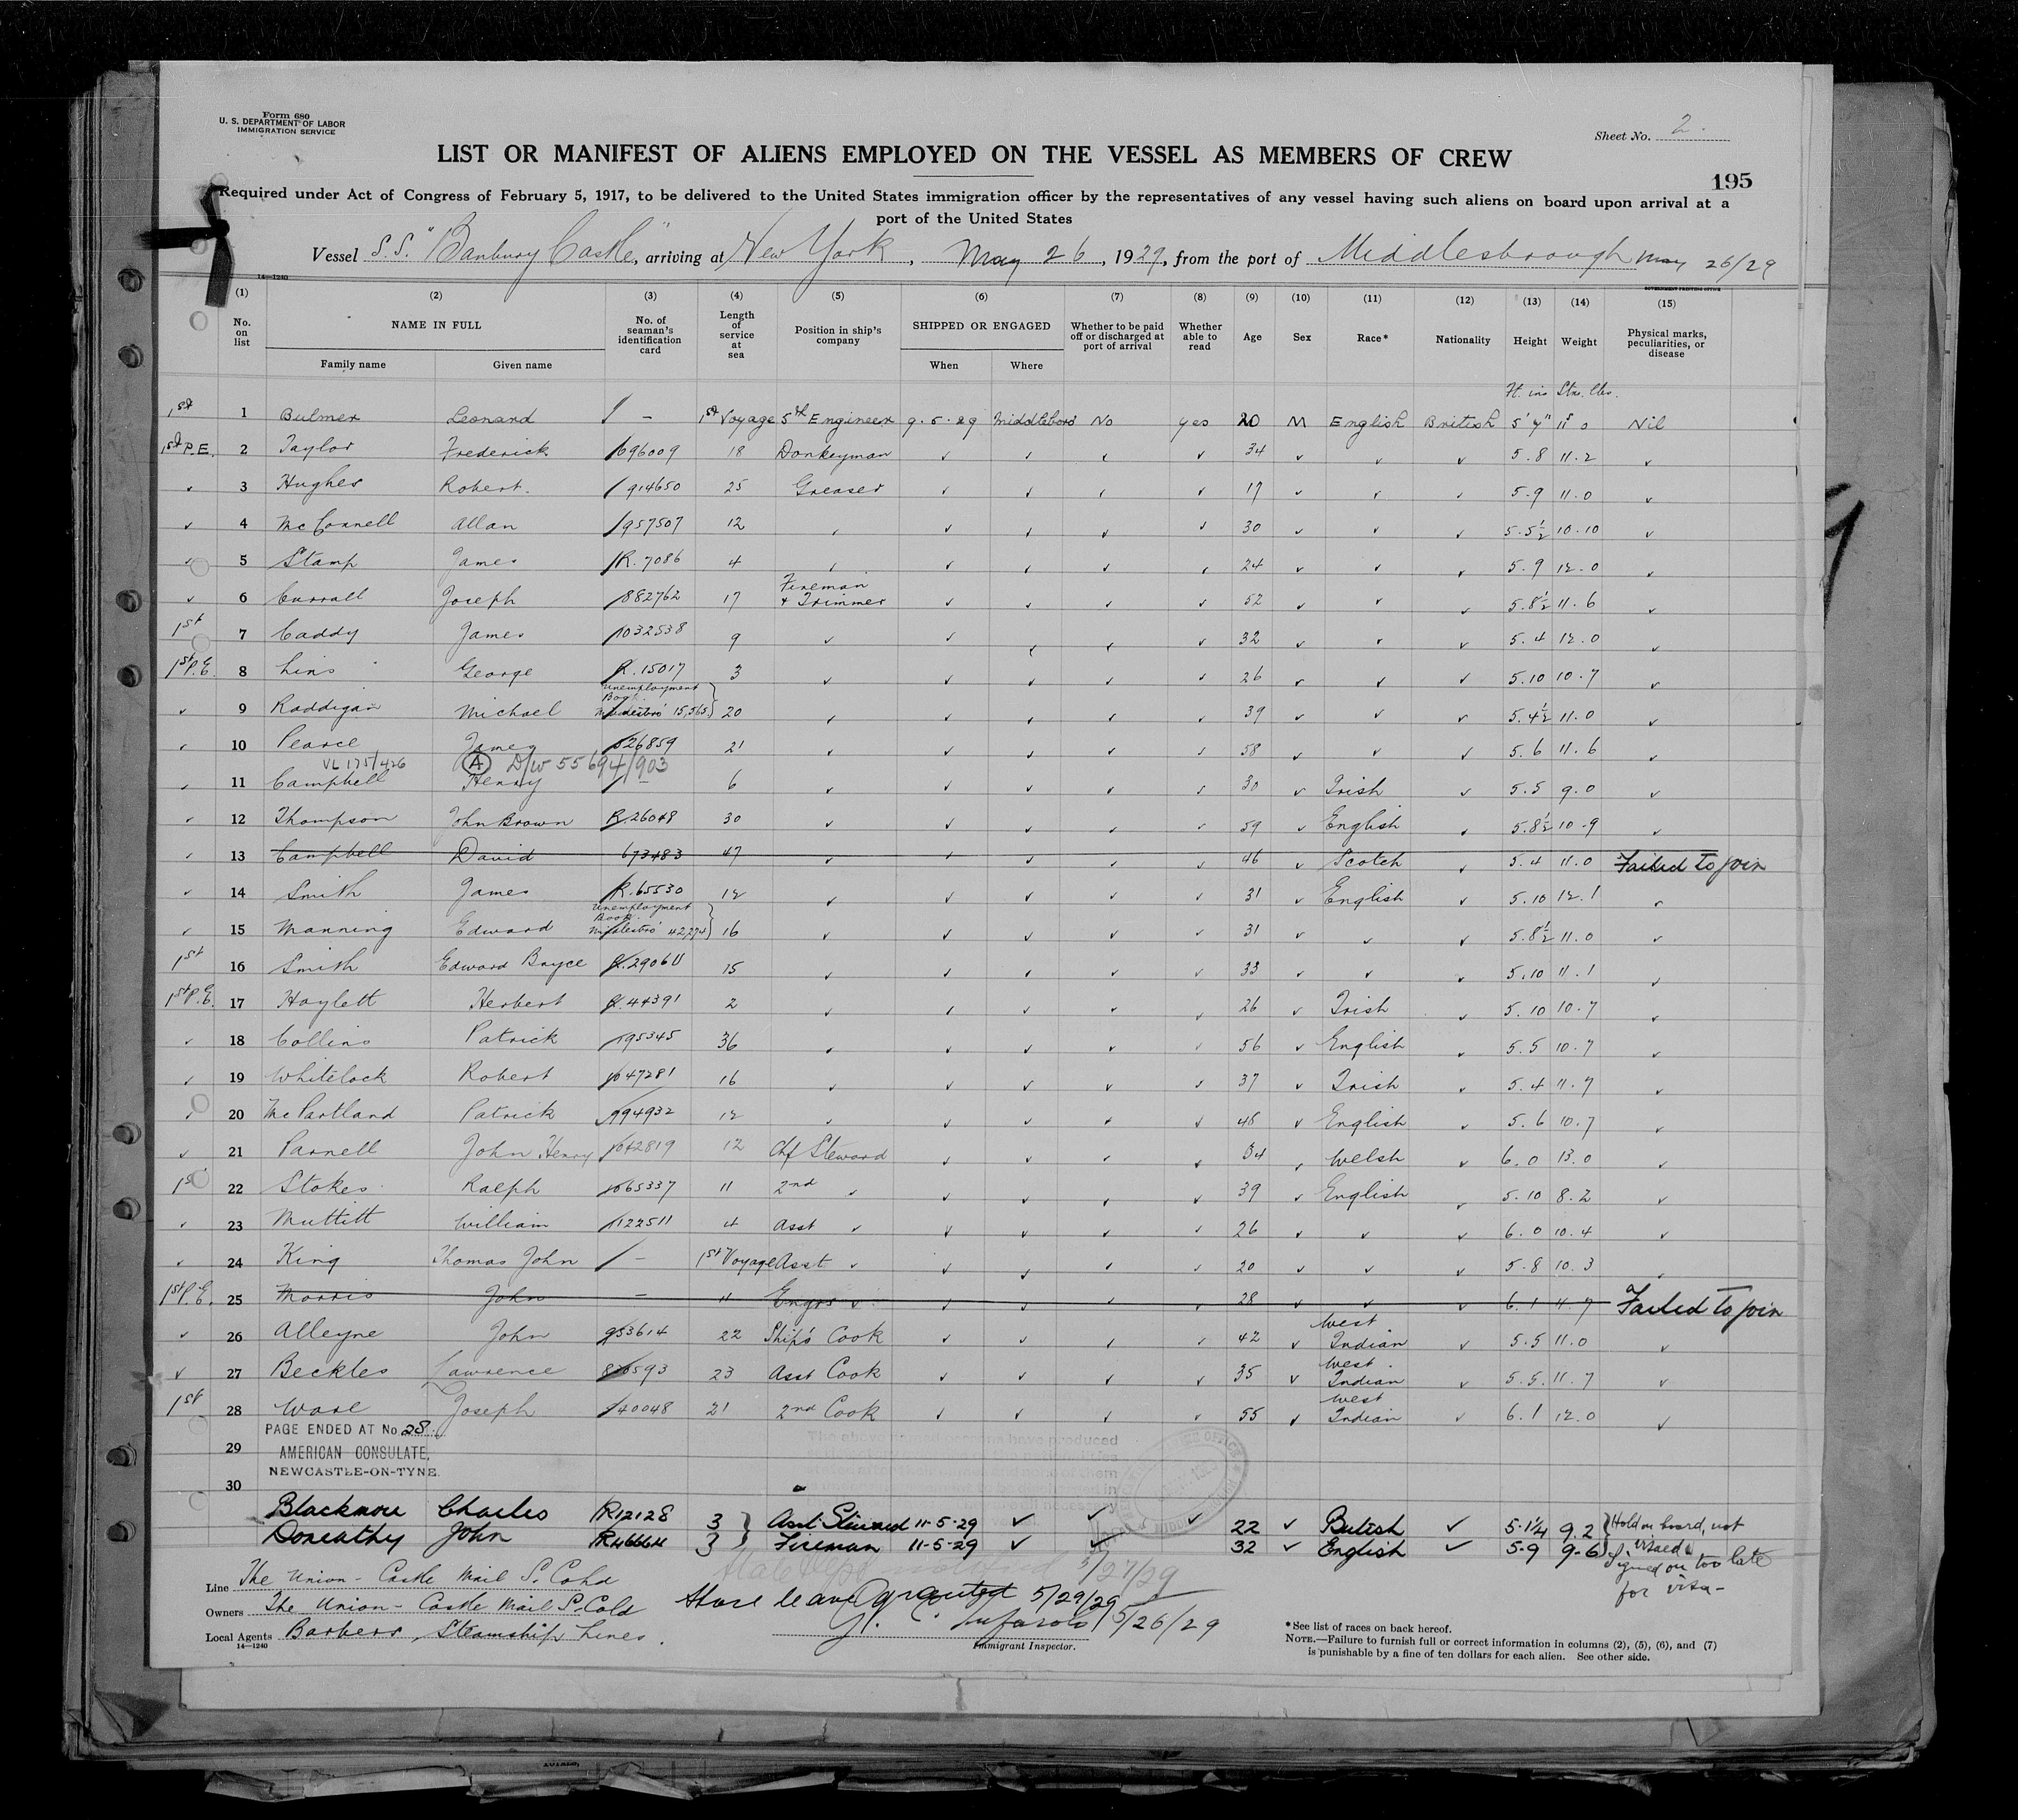 Form 680
U. S. DEPARTMENT OF LABOR
IMMIGRATION SERVICE
Sheet No. 2.
LIST OR MANIFEST OF ALIENS EMPLOYED ON THE VESSEL AS MEMBERS OF CREW
195
Required under Act of Congress of February 5, 1917, to be delivered to the United States immigration officer by the representatives of any vessel having such aliens on board upon arrival at a
port of the United States
Vessel S.S. "Banbury Castle", arriving at New York, May 26, 1929, from the port of Middlesbrough May 26/29
14—1240 GOVERNMENT PRINTING OFFICE
(1) (2) (3) (4) (5) (6) (7) (8) (9) (10) (11) (12) (13) (14) (15)
No. on list NAME IN FULL Family name Given name No. of seaman's identification card Length of service at sea Position in ship's company SHIPPED OR ENGAGED When Where Whether to be paid off or discharged at port of arrival Whether able to read Age Sex Race* Nationality Height Weight Physical marks, peculiarities, or disease
Ft. ins Sts. lbs.
1st 1 Bulmer Leonard / - 1st Voyage 5th Engineer 9.5.29 Middlsboro No yes 20 M English British 11 0 Nil
1st P.E. 2 Taylor Frederick 696009 18 Donkeyman ✓ ✓ ✓ ✓ 34 ✓ ✓ ✓ 5.8 11.2 ✓
✓ 3 Hughes Robert. 914650 25 Greaser ✓ ✓ ✓ ✓ 17 ✓ ✓ ✓ 5.9 11.0 ✓
✓ 4 McConnell Allan 957507 12 ✓ ✓ ✓ ✓ ✓ 30 ✓ ✓ ✓ 5.5½ 10.10 ✓
✓ 5 Stamp James R. 7086 4 ✓ ✓ ✓ ✓ ✓ 24 ✓ ✓ ✓ 5.9 12.0 ✓
✓ 6 Currall Joseph 882762 17 Fireman + Trimmer ✓ ✓ ✓ ✓ 52 ✓ ✓ ✓ 5.8½ 11.6 ✓
1st 7 Caddy James 1032538 9 ✓ ✓ ✓ ✓ ✓ 32 ✓ ✓ ✓ 5.4 12.0 ✓
1st P.E. 8 Lins George R. 15017 3 ✓ ✓ ✓ ✓ ✓ 26 ✓ ✓ ✓ 5.10 10.7 ✓
✓ 9 Raddigan Michael Unemployment Book Middlesbro' 15,565 20 ✓ ✓ ✓ ✓ ✓ 39 ✓ ✓ ✓ 5.4½ 11.0 ✓
✓ 10 Pearce James 526859 21 ✓ ✓ ✓ ✓ ✓ 58 ✓ ✓ ✓ 5.6 11.6 ✓
VL 175/426 (A) D/W 55694/903
✓ 11 Campbell Henry / - 6 ✓ ✓ ✓ ✓ ✓ 30 ✓ Irish ✓ 5.5 9.0 ✓
✓ 12 Thompson John Brown R.26048 30 ✓ ✓ ✓ ✓ ✓ 59 ✓ English ✓ 5.8½ 10.9 ✓
✓ 13 Campbell David 673483 47 ✓ ✓ ✓ ✓ ✓ 46 ✓ Scotch ✓ 5.4 11.0 Failed to join
✓ 14 Smith James R.65530 12 ✓ ✓ ✓ ✓ ✓ 31 ✓ English ✓ 5.10 12.1 ✓
✓ 15 Manning Edward Unemployment Book. Middlesbro' 42,274 16 ✓ ✓ ✓ ✓ ✓ 31 ✓ ✓ ✓ 5.8½ 11.0 ✓
1st 16 Smith Edward Boyce 15 ✓ ✓ ✓ ✓ ✓ 33 ✓ ✓ ✓ 5.10 11.1 ✓
1st P.E. 17 Haylett Herbert R.44391 2 ✓ ✓ ✓ ✓ ✓ 26 ✓ Irish ✓ 5.10 10.7 ✓
✓ 18 Collins Patrick 595345 36 ✓ ✓ ✓ ✓ ✓ 56 ✓ English ✓ 5.5 10.7 ✓
✓ 19 Whitelock Robert 1047281 16 ✓ ✓ ✓ ✓ ✓ 37 ✓ Irish ✓ 5.4 11.7 ✓
✓ 20 McPartland Patrick 994932 12 ✓ ✓ ✓ ✓ ✓ 48 ✓ English ✓ 5.6 10.7 ✓
✓ 21 Parnell John Henry 1042819 12 Chf Steward ✓ ✓ ✓ ✓ 34 ✓ Welsh ✓ 6.0 13.0 ✓
1st 22 Stokes Ralph 1065337 11 2nd ✓ ✓ ✓ ✓ ✓ 39 ✓ English ✓ 5.10 8.2 ✓
✓ 23 Muttitt William 1122511 4 Asst ✓ ✓ ✓ ✓ ✓ 26 ✓ ✓ ✓ 6.0 10.4 ✓
✓ 24 King Thomas John / - 1st Voyage Asst ✓ ✓ ✓ ✓ ✓ 20 ✓ ✓ ✓ 5.8 10.3 ✓
1st P.E. 25 Morris John - " Engrs ✓ ✓ ✓ ✓ ✓ 28 ✓ ✓ ✓ 6.1 11.7 Failed to join
✓ 26 Alleyne John 953614 22 Ship's Cook ✓ ✓ ✓ ✓ 42 ✓ West Indian ✓ 5.5 11.0 ✓
✓ 27 Beckles Lawrence 23 Asst Cook ✓ ✓ ✓ ✓ 35 ✓ West Indian ✓ 5.5. 11.7 ✓
1st 28 Joseph 21 2nd Cook ✓ ✓ ✓ ✓ 55 ✓ West Indian ✓ 6.1 12.0 ✓
PAGE ENDED AT No 28
29 AMERICAN CONSULATE,
NEWCASTLE-ON-TYNE.
30
Blackmore Charles R12128 3 Asst Steward 11-5-29 ✓ ✓ ✓ 22 ✓ British ✓ 5.1¼ 9.2 Hold on board, not visaed
Doneathy John R46664 3 Fireman 11-5-29 ✓ ✓ 32 ✓ English ✓ 5-9 9-6 Signed on too late for visa-
Line The Union-Castle Mail S. Co Ltd
5/27/29
Owners The Union-Castle Mail S. Co Ltd
Shore leave granted 5/29/29
Local Agents Barbers Steamship Lines.
14—1240
5/26/29
Immigrant Inspector.
*See list of races on back hereof.
NOTE.—Failure to furnish full or correct information in columns (2), (5), (6), and (7)
is punishable by a fine of ten dollars for each alien. See other side.